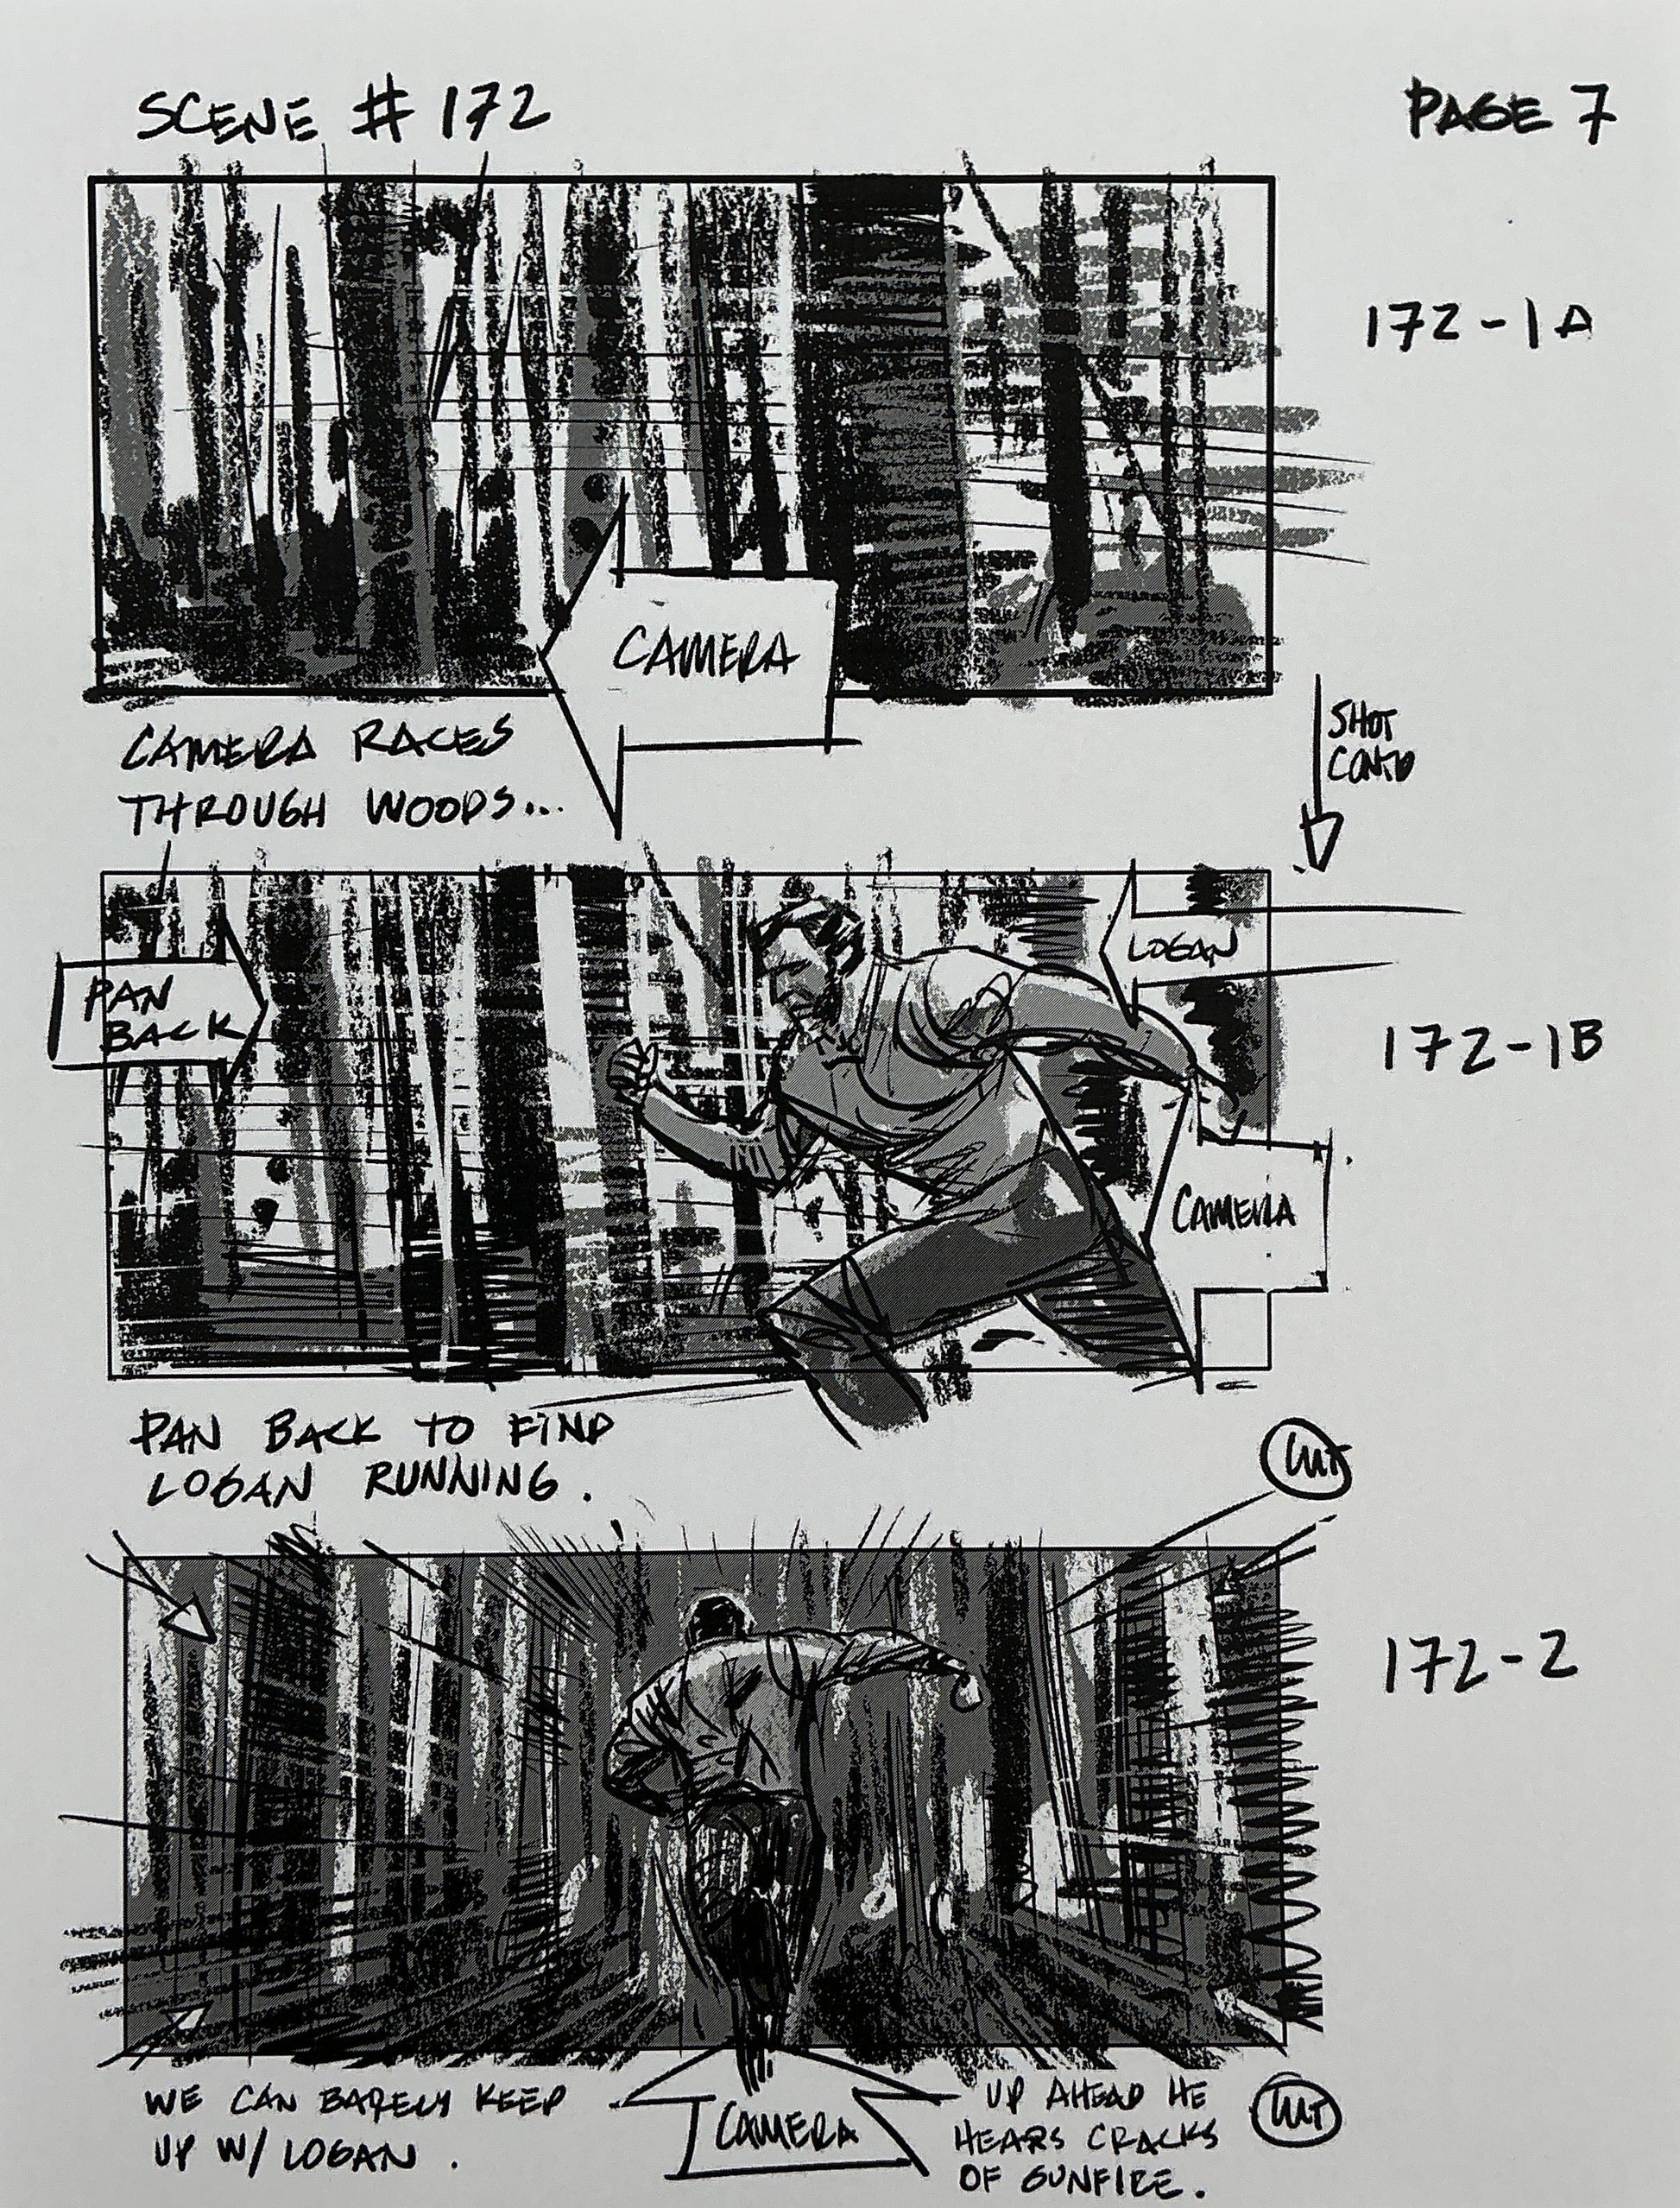 SCENE # 172
PAGE 7
172-1A
CAMERA
CAMERA RACES
THROUGH WOODS...
SHOT
CONT'D
LOGAN
PAN
BACK
172-1B
CAMERA
PAN BACK TO FIND
LOGAN RUNNING.
CUT
172-2
WE CAN BARELY KEEP
UP W/ LOGAN.
CAMERA
UP AHEAD HE
HEARS CRACKS
OF GUNFIRE.
CUT